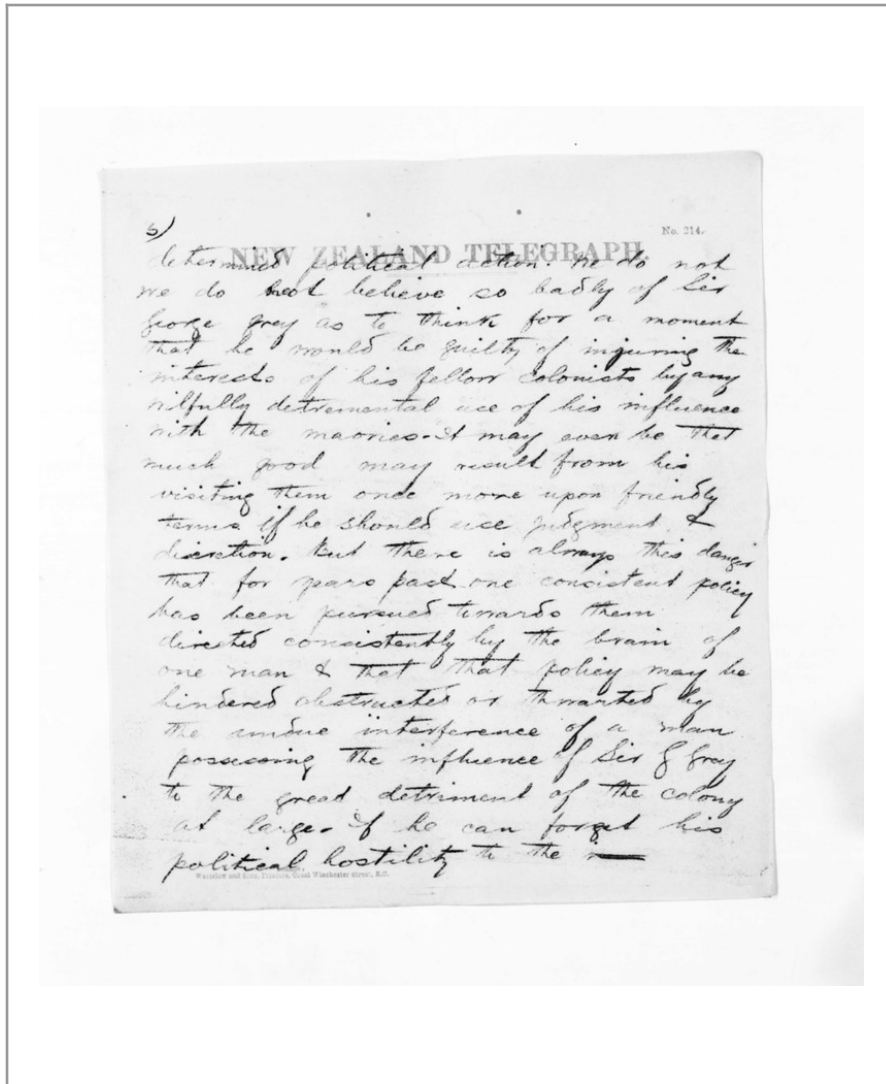 5)
No. 214.
NEW ZEALAND TELEGRAPH.
determined political action. We do not
we do not believe so badly of Sir
George Grey as to think for a moment
that he would be guilty of injuring the
interests of his fellow colonists by any
wilfully detremental use of his influence
with the maories. It may even be that
much good may result from his
visiting them once more upon friendly
terms if he should use judgment &
discretion. But there is always this danger
that for years past one consistent policy
has been pursued towards them
directed consistently by the brain of
one man & that that policy may be
hindered obstructed or thwarted by
the undue interference of a man
possessing the influence of Sir G Grey
to the great detriment of the colony
at large. If he can forget his
political hostility to the
Waterlow and Sons, Printers, Great Winchester Street, E.C.